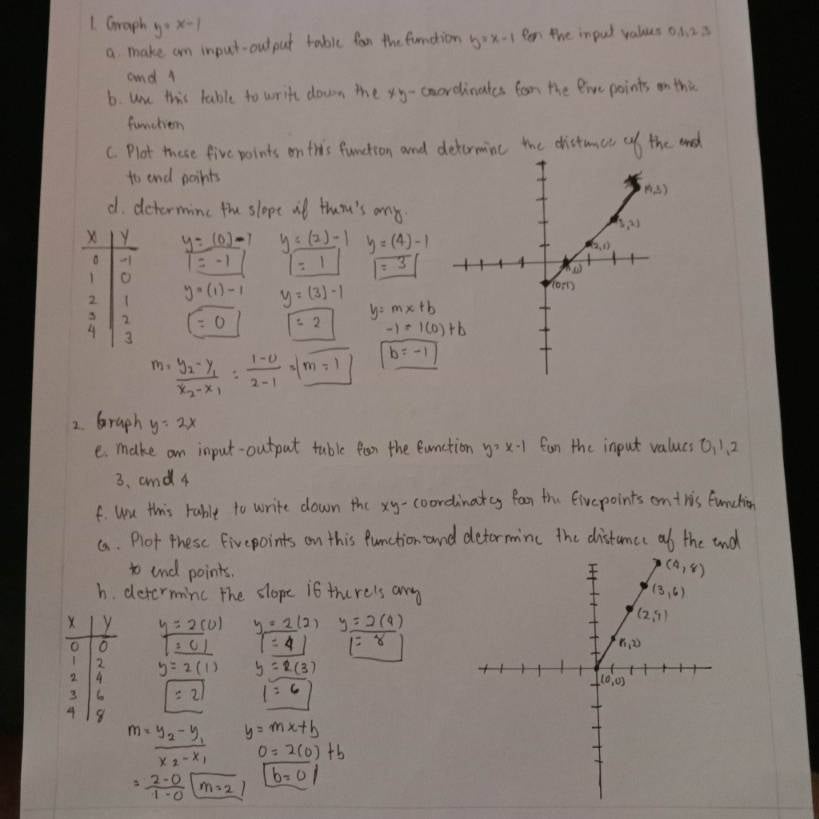 1. Graph y = x-1
a. make an input-output table for the function y = x-1 for the input values 0,1,2,3
and 4
b. Use this table to write down the xy-coordinates for the five points on this
function
c. Plot these five points on this function and determine the distance of the end
to end points
d. determine the slope if there's any.
x | y
0 | -1
1 | 0
2 | 1
3 | 2
4 | 3
y = (0)-1 y = (2)-1 y = (4)-1
= -1 = 1 = 3
y = (1)-1 y = (3)-1
= 0 = 2
y = mx+b
-1 = 1(0)+b
b = -1
m = y₂-y₁ / x₂-x₁ = 1-0 / 2-1 = m = 1
(4,3)
(3,2)
(2,1)
(0,-1)
2. Graph y = 2x
e. make an input-output table for the function y = x-1 for the input values 0,1,2
3, and 4
f. Use this table to write down the xy-coordinates for the five points on this function
G. Plot these five points on this function and determine the distance of the end
to end points.
h. determine the slope if there is any
x | y
0 | 0
1 | 2
2 | 4
3 | 6
4 | 8
y = 2(0) y = 2(2) y = 2(4)
= 0 = 4 = 8
y = 2(1) y = 2(3)
= 2 = 6
m = y₂-y₁ / x₂-x₁
= 2-0 / 1-0 m = 2
y = mx+b
0 = 2(0)+b
b = 0
(4,8)
(3,6)
(2,4)
(1,2)
(0,0)